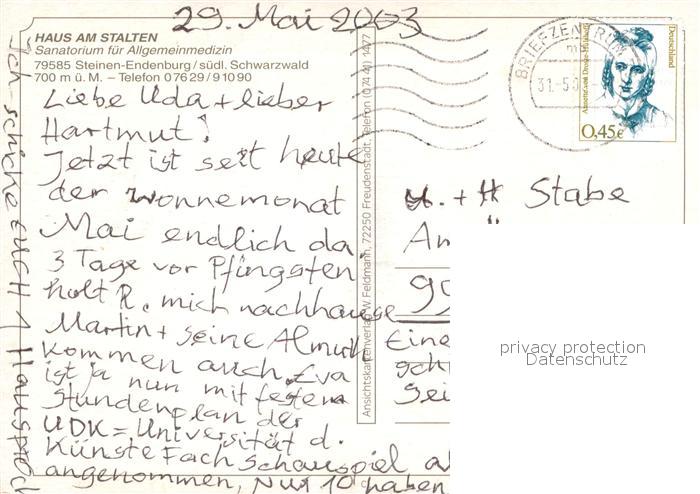 29. Mai 2003
HAUS AM STALTEN
Sanatorium für Allgemeinmedizin
79585 Steinen-Endenburg / südl. Schwarzwald
700 m ü. M. – Telefon 0 76 29 / 9 10 90
Liebe Uda + lieber
Hartmut!
Jetzt ist seit heute
der Wonnemonat
Mai endlich da.
3 Tage vor Pfingsten
holt R. mich nachhause
Martin + seine Almuth
kommen auch. Eva
ist ja nun mit festem
Stundenplan der
UDK = Universität d.
Künste Fach Schauspiel
angenommen, Nur 10 haben
Ich schicke EUCH 1
Ansichtskartenverlag W. Feldmann, 72250 Freudenstadt, Telefon (07441) 1477
BRIEFZENTRUM
31.-5.
Deutschland
Annette von Droste-Hülshoff
0,45€
U. + H Stabe
Am
Eine
privacy protection
Datenschutz